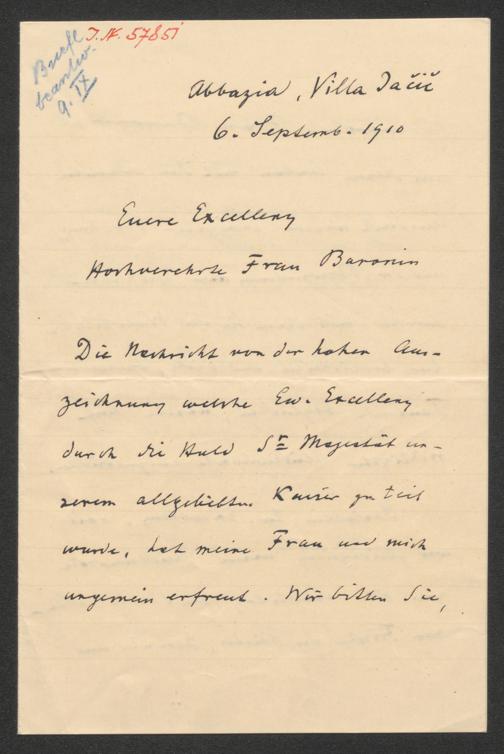 I.N. 57851
Briefl
beantw.
9. IX
Abbazia, Villa Jačić
6. Septemb. 1910
Euere Excellenz
Hochverehrte Frau Baronin
Die Nachricht von der hohen Aus-
zeichnung welche Ew. Excellenz
durch die Huld Sr Majestät un-
serem allgeliebten Kaiser zu teil
wurde, hat meine Frau und mich
ungemein erfreut. Wir bitten Sie,